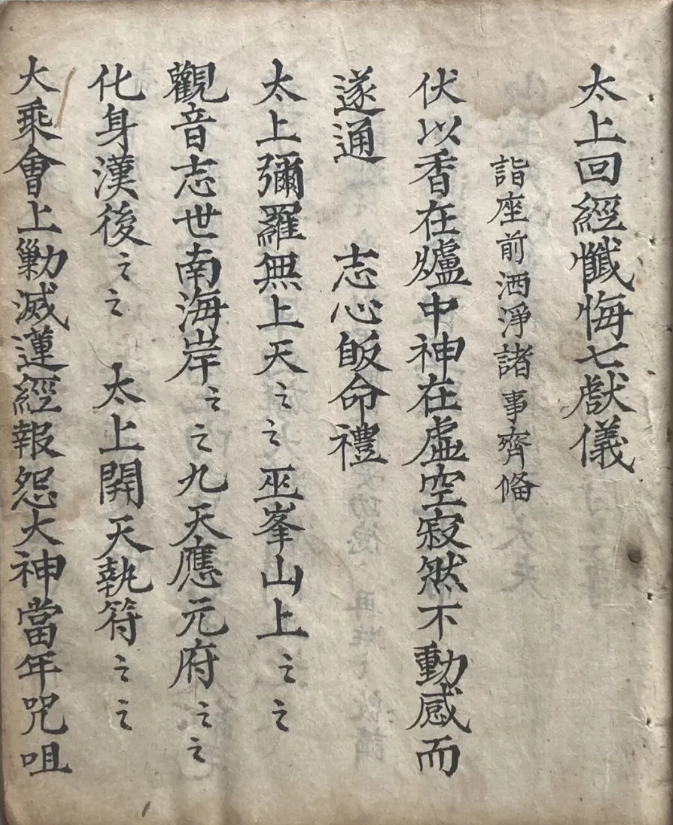 太上回經懺悔七獻儀
詣座前洒淨諸事齊俻
伏以香在爐中神在虛空寂然不動感而
遂通　志心皈命禮
太上彌羅無上天〻〻巫峯山上〻〻
觀音志世南海岸〻〻九天應元府〻〻
化身漢後〻〻　太上開天執符〻〻
大乘會上勦滅蓮經報怨大神當年咒咀